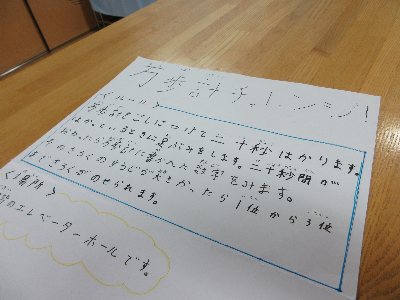 万歩計チャレンジ!
<ルール>
万歩計をこしにつけて二十秒はかります。
はかっているときに足ぶみをします。二十秒間が
たったら万歩計に書かれた数字をみます。
そのきろくのすうじが大きかったら1位から3位
まできろくがのせられます。
<場所>
階のエレベーターホールです。